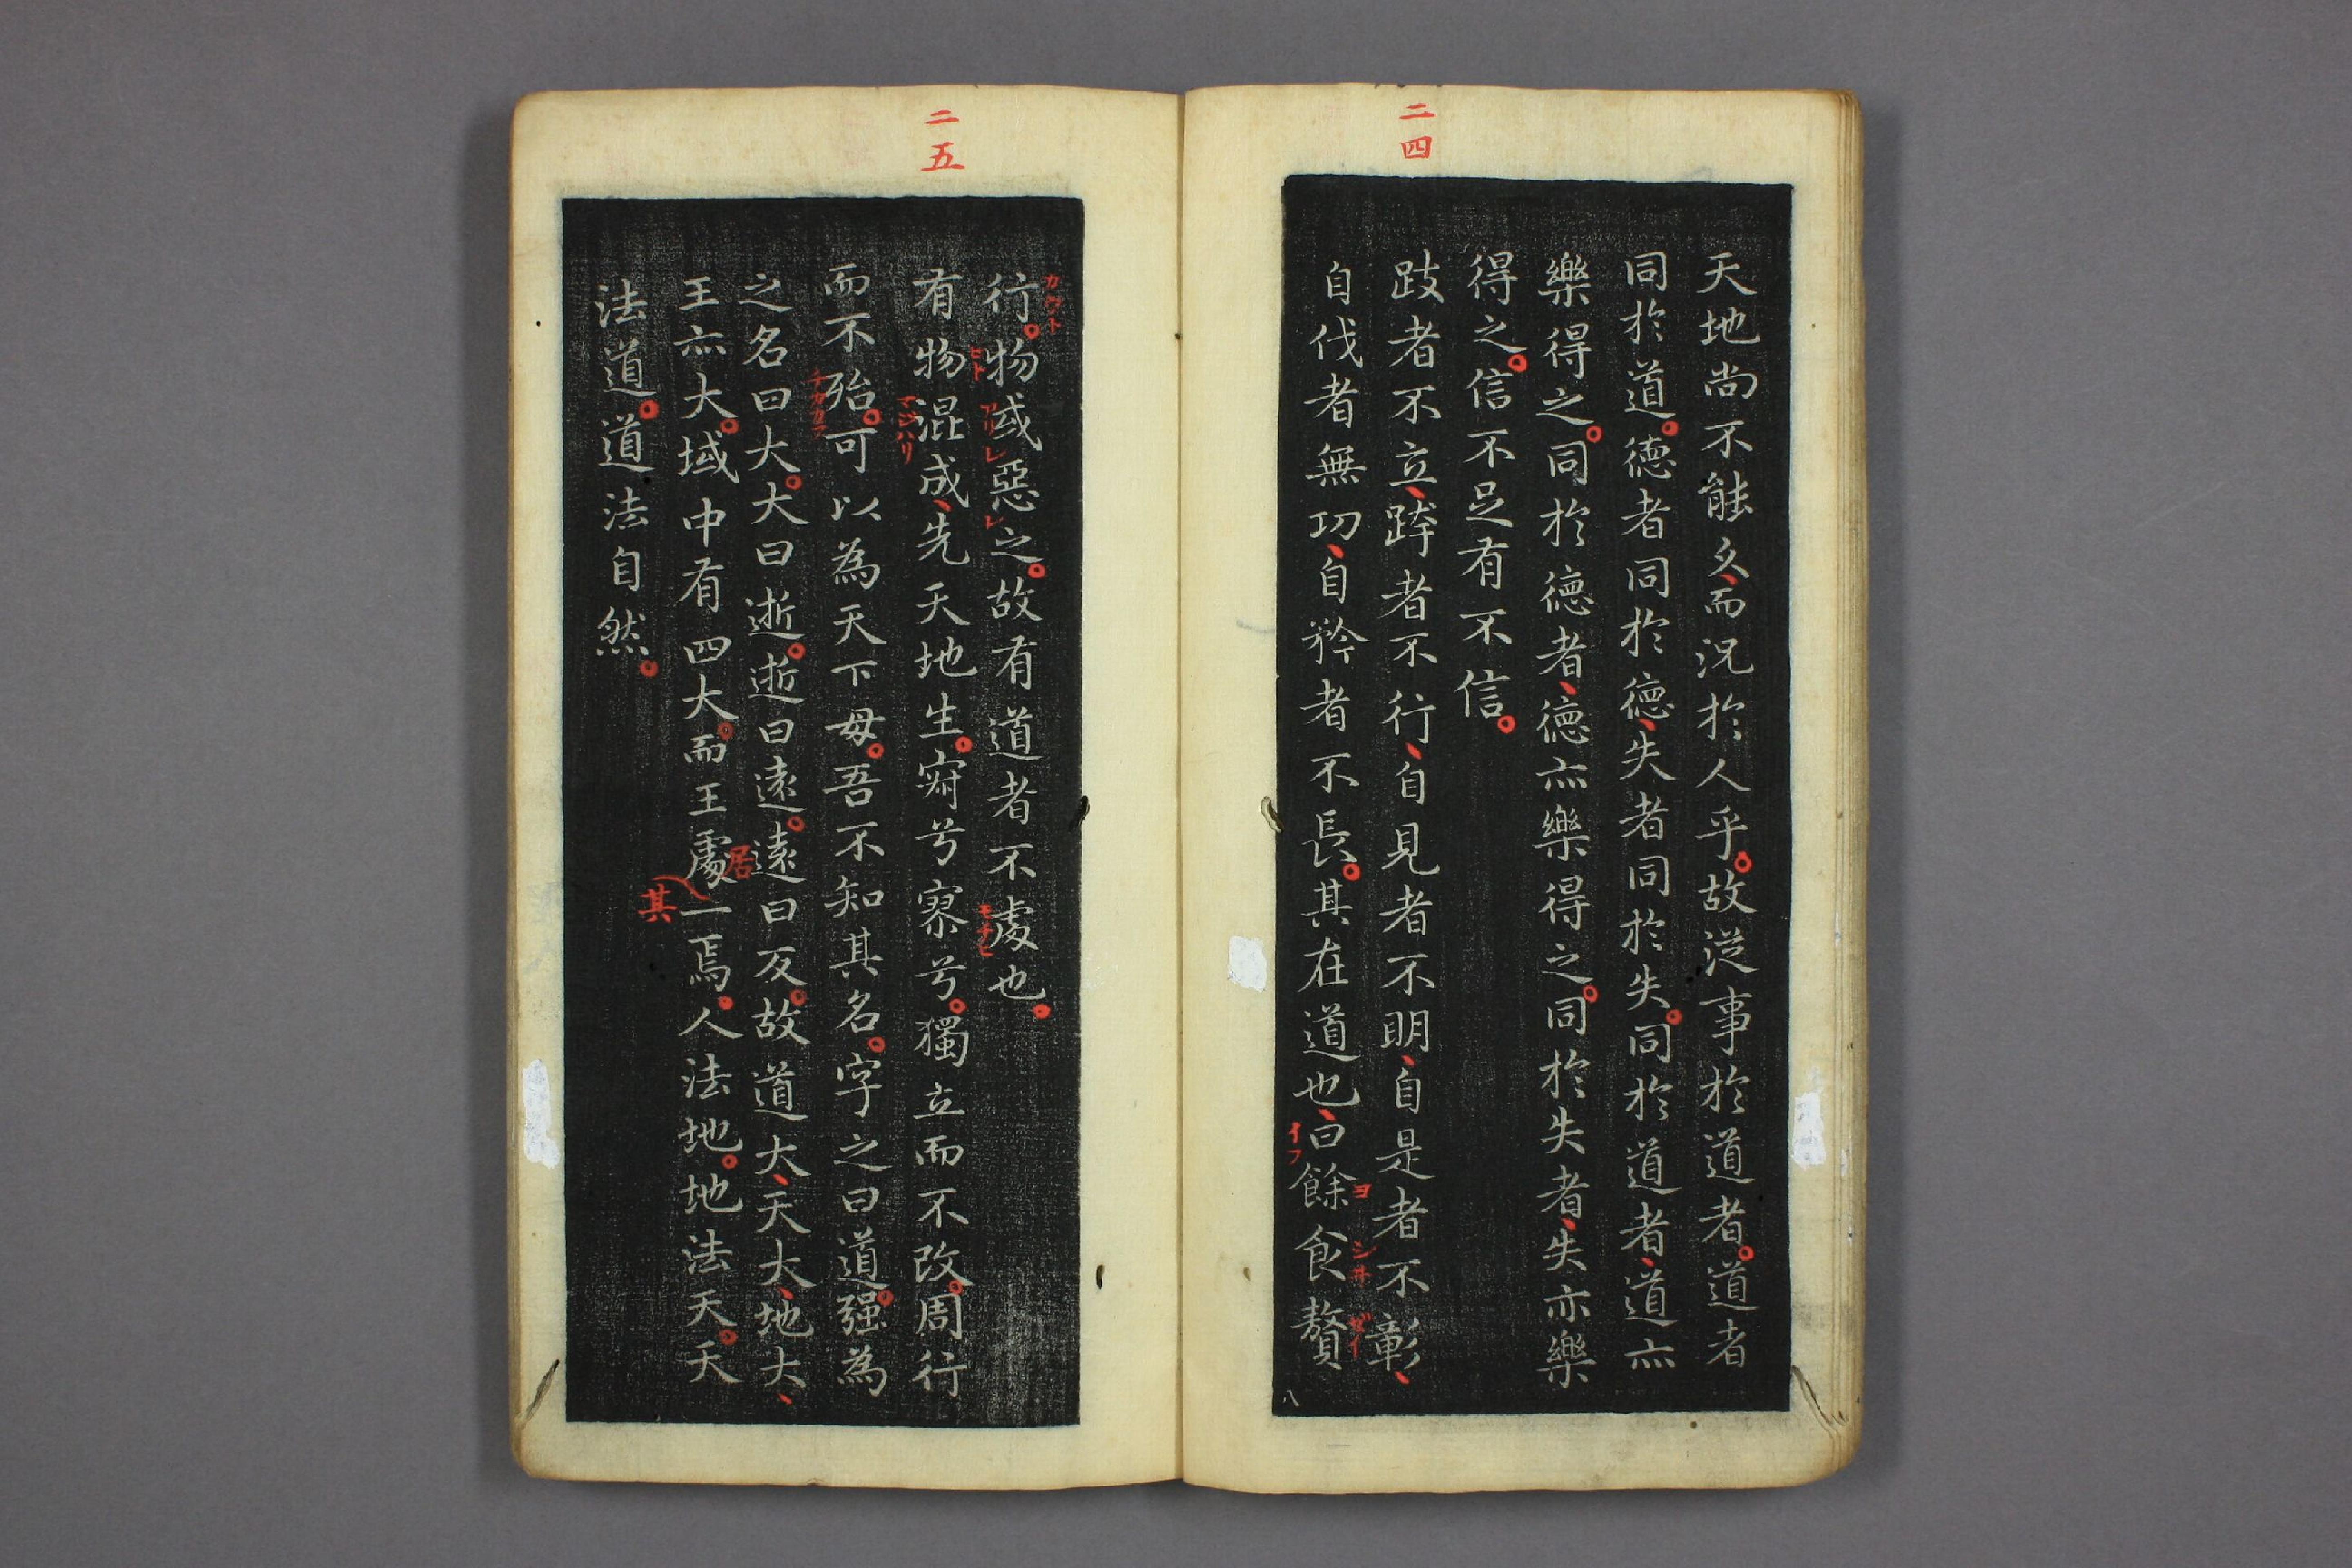 二四
天地尚不能久、而況於人乎。故從事於道者。道者
同於道。德者同於德、失者同於失。同於道者、道亦
樂得之。同於德者、德亦樂得之。同於失者、失亦樂
得之。信不足有不信。
跂者不立、跨者不行、自見者不明、自是者不彰、
自伐者無功、自矜者不長。其在道也、曰餘食贅
イフ
ヨ
シキ
ゼイ
八
二五
行。物或惡之。故有道者不處也。
カウト
アリ
レ
レ
有物混成、先天地生。寂兮寥兮。獨立而不改。周行
ヒト
マジハリ
而不殆。可以為天下母。吾不知其名。字之曰道。強為
之名曰大。大曰逝。逝曰遠。遠曰反。故道大、天大、地大、
王亦大。域中有四大。而王處一焉。人法地。地法天。天
居
其
法道。道法自然。